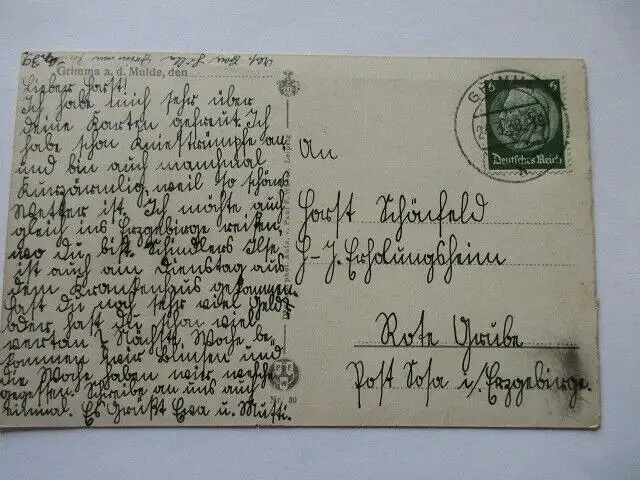 Grimma a. d. Mulde, den
Lieber Horst!
Ich habe mich sehr über
deine Karten gefreut. Ich
habe schon Kniestrümpfe an
und bin auch manchmal
Kurzärmlig, weil so schönes
Wetter ist. Ich möchte auch
gleich ins Erzgebirge reisen,
wo Du bist. Schindlers Ilse
ist auch am Dienstag aus
dem Krankenhaus gekommen.
Hast du noch sehr viel Geld?
oder hast Du schon viel
vertan. Nächste Woche be-
kommen wir und
die Woche haben wir
gegessen. Schreibe an uns auch
einmal. Es Grüßt Eva u. Mutti.
An
Horst Schönfeld
H-J. Erholungsheim
Rote Grube
Post Sosa i/Erzgebirge.
6 6
Deutsches Reich
Nr. 30